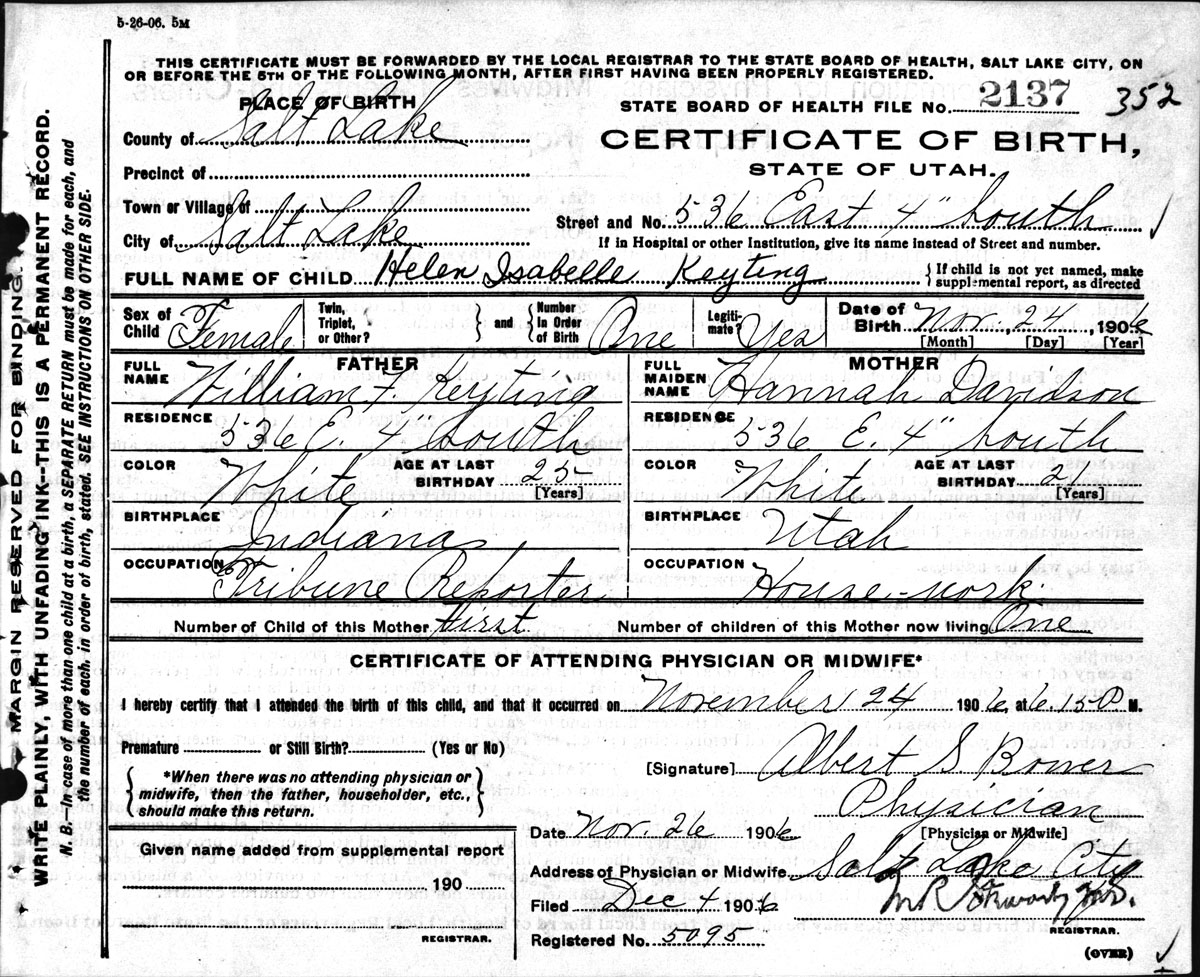 5-26-06. 5M
THIS CERTIFICATE MUST BE FORWARDED BY THE LOCAL REGISTRAR TO THE STATE BOARD OF HEALTH, SALT LAKE CITY, ON
OR BEFORE THE 5TH OF THE FOLLOWING MONTH, AFTER FIRST HAVING BEEN PROPERLY REGISTERED.
PLACE OF BIRTH
STATE BOARD OF HEALTH FILE No. 2137 352
County of Salt Lake
CERTIFICATE OF BIRTH,
STATE OF UTAH.
Precinct of
Town or Village of
Street and No. 536 East 4" South
City of Salt Lake
If in Hospital or other Institution, give its name instead of Street and number.
FULL NAME OF CHILD Helen Isabelle Keyting { If child is not yet named, make supplemental report, as directed
Sex of Child Female Twin, Triplet, or Other? } and { Number in Order of Birth One Legiti-mate? Yes Date of Birth Nov. 24, 1906
[Month] [Day] [Year]
FATHER
FULL NAME William F. Keyting
RESIDENCE 536 E. 4" South
COLOR White AGE AT LAST BIRTHDAY 25 [Years]
BIRTHPLACE Indiana
OCCUPATION Tribune Reporter
MOTHER
FULL MAIDEN NAME Hannah Davidson
RESIDENCE 536 E. 4" South
COLOR White AGE AT LAST BIRTHDAY 21 [Years]
BIRTHPLACE Utah
OCCUPATION House-work.
Number of Child of this Mother First Number of children of this Mother now living One
CERTIFICATE OF ATTENDING PHYSICIAN OR MIDWIFE*
I hereby certify that I attended the birth of this child, and that it occurred on November 24 1906, at 6.15 P M.
Premature or Still Birth? (Yes or No)
{ *When there was no attending physician or midwife, then the father, householder, etc., should make this return. }
[Signature] Albert S. Bower
Physician
[Physician or Midwife]
Date Nov. 26 1906
Address of Physician or Midwife Salt Lake City
Filed Dec 4 1906
REGISTRAR.
Registered No. 5095
(OVER)
Given name added from supplemental report
190
REGISTRAR.
MARGIN RESERVED FOR BINDING.
WRITE PLAINLY, WITH UNFADING INK-THIS IS A PERMANENT RECORD.
N. B.—In case of more than one child at a birth, a SEPARATE RETURN must be made for each, and
the number of each, in order of birth, stated. SEE INSTRUCTIONS ON OTHER SIDE.